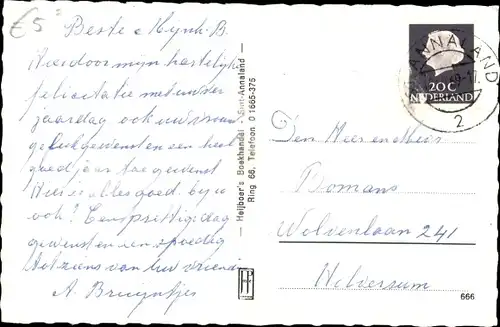 €5
Beste Mijnh. B.
Hierdoor mijn hartelijke
felicitatie met uw
jaardag ook uw man
geluk gewenst en een heel
goed jaar toegewenst
Hier is alles goed. bij u
ook? Een prettige dag
gewenst en een spoedig
tot ziens van Uw vriend
A. Bruijntjes
Heijboer's Boekhandel - Sint-Annaland
Ring 66, Telefoon 0 1665-375
ANNALAND
2
20 C
NEDERLAND
Den Heer en Mevr
Bomans
Wolvenlaan 241
Hilversum
666